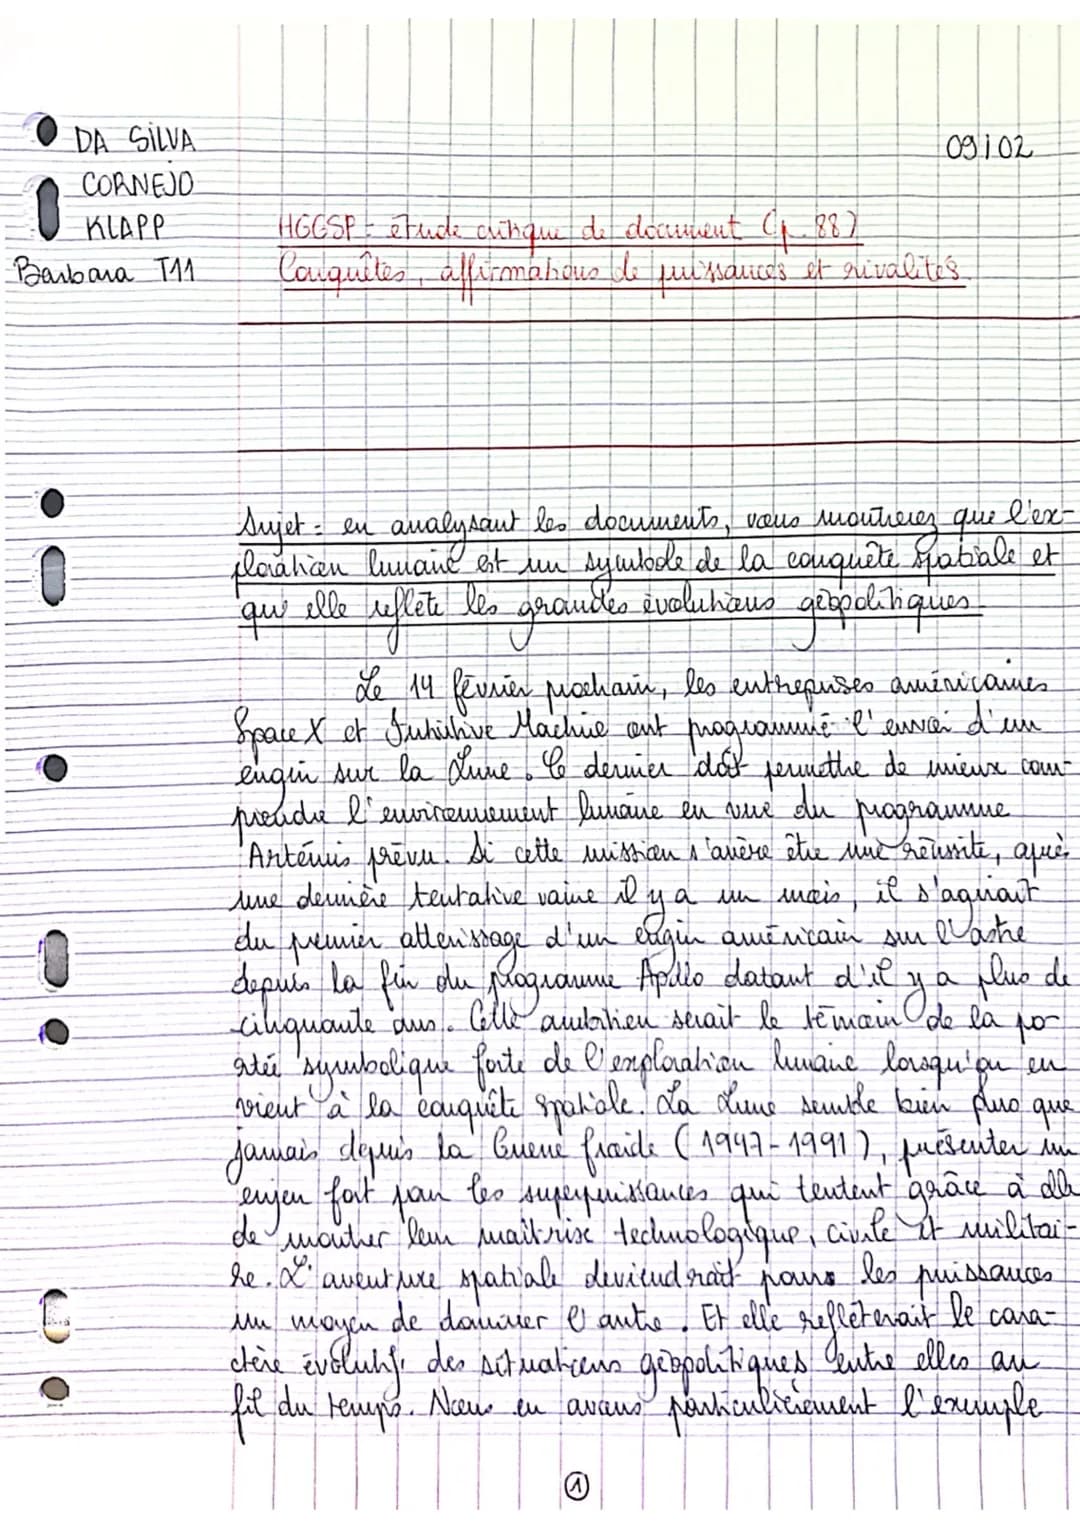 DA SILVA
09/02
CORNEJO
KLAPP
HGGSP - étude critique de document (p. 88)
Barbara T11
Conquêtes, affirmations de puissances et rivalités.
Sujet = en analysant les documents, vous montrerez que l'ex-
ploration lunaire est un symbole de la conquête spatiale et
qu'elle reflète les grandes évolutions géopolitiques.
Le 14 février prochain, les entreprises américaines
Space X et Intuitive Machine ont programmé l'envoi d'un
engin sur la Lune. Ce dernier doit permettre de mieux com-
prendre l'environnement lunaire en vue du programme
Artémis prévu. Si cette mission s'avère être une réussite, après
une dernière tentative vaine il y a un mois, il s'agirait
du premier atterissage d'un engin américain sur l'astre
depuis la fin du programme Apollo datant d'il y a plus de
cinquante ans. Cette ambition serait le témoin de la po-
rtée symbolique forte de l'exploration lunaire lorsqu'on en
vient à la conquête spatiale. La Lune semble bien plus que
jamais depuis la Guerre froide (1947-1991), présenter un
enjeu fort pour les superpuissances qui tentent grâce à elle
de montrer leur maîtrise technologique, civile et militai-
re. L'aventure spatiale deviendrait pour les puissances
un moyen de dominer l'autre. Et elle refléterait le cara-
ctère évolutif des situations géopolitiques entre elles au
fil du temps. Nous en avons particulièrement l'exemple
1